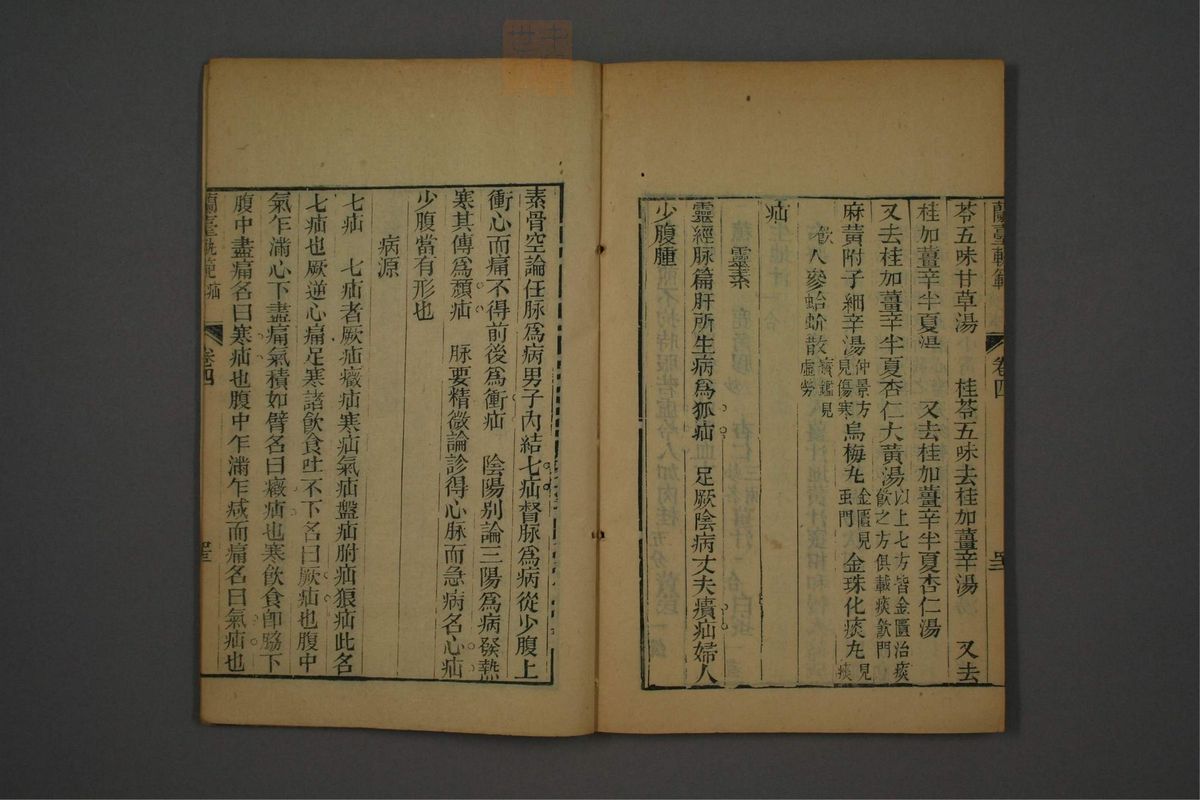 蘭臺軌範 卷四
苓五味甘草湯 桂苓五味去桂加薑辛湯 又去
桂加薑辛半夏湯 又去桂加薑辛半夏杏仁湯
又去桂加薑辛半夏杏仁大黃湯以上七方皆金匱治痰飲之方俱載痰飲門
麻黃附子細辛湯仲景方見傷寒 烏梅丸金匱見虫門 金珠化痰丸見痰
飲 人參蛤蚧散寶鑑見虛勞
疝
靈素
靈經脉篇肝所生病爲狐疝 足厥陰病丈夫㿉疝婦人
少腹腫
素骨空論任脉爲病男子內結七疝督脉爲病從少腹上
衝心而痛不得前後爲衝疝 陰陽別論三陽爲病發熱
寒其傳爲㿗疝 脉要精微論診得心脉而急病名心疝
少腹當有形也
病源
七疝 七疝者厥疝癥疝寒疝氣疝盤疝胕疝狼疝此名
七疝也厥逆心痛足寒諸飲食吐不下名曰厥疝也腹中
氣乍滿心下盡痛氣積如臂名曰癥疝也寒飲食卽脇下
腹中盡痛名曰寒疝也腹中乍滿乍減而痛名曰氣疝也
蘭臺軌範 疝 卷四